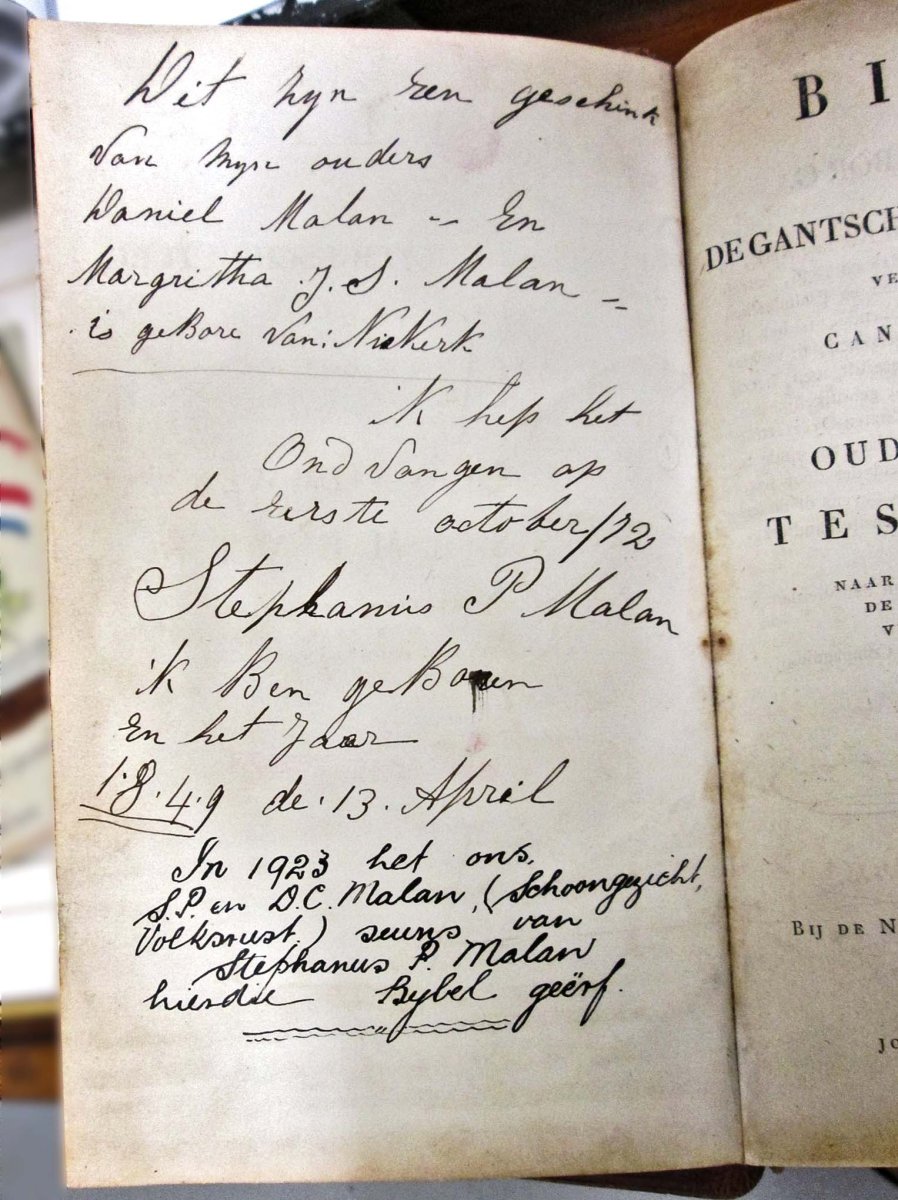 Dit zyn een geschink
van myn ouders
Daniel Malan – En
Margritha J. S. Malan –
is geBore van: NieKerk
ik heb het
Ond vangen op
de eerste october/72
Stephanus P Malan
ik Ben geBoren
en het Jaar
1.8.4.9 de. 13. April
In 1923 het ons,
S.P. en D.C. Malan, (Schoongezicht,
Volksrust,) seuns van
Stephanus P. Malan
hierdie Bybel geërf.
BI
DE GANTSCH
VE
CAN
OUD
TES
NAAR
DE
V
BIJ DE N
JO